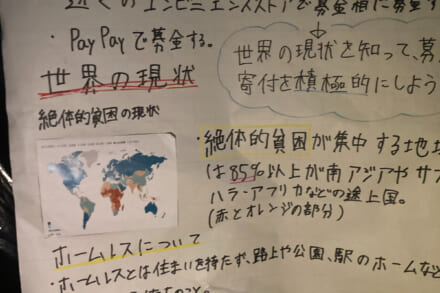 近くのコンビニエンスストアで募金箱に募金す
・PayPayで募金する。
世界の現状を知って、募
寄付を積極的にしよう
世界の現状
絶体的貧困の現状
・絶体的貧困が集中する地
は85%以上が南アジアやサブ
ハラ・アフリカなどの途上国。
(赤とオレンジの部分)
ホームルスについて
・ホームルスとは住まいを持たず、路上や公園、駅のホームなど